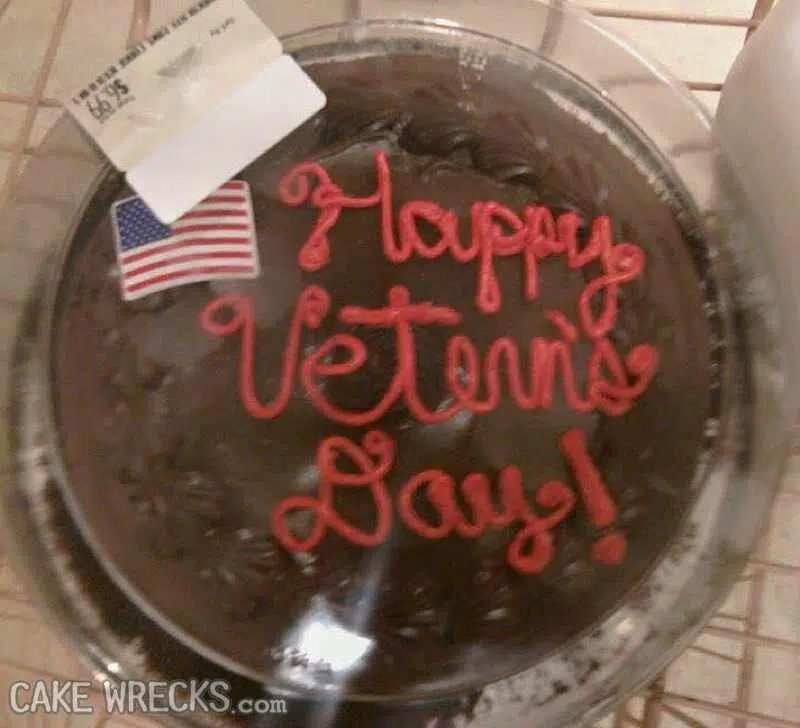 $9.99
Happy
Vetern's
Day!
CAKE WRECKS.com